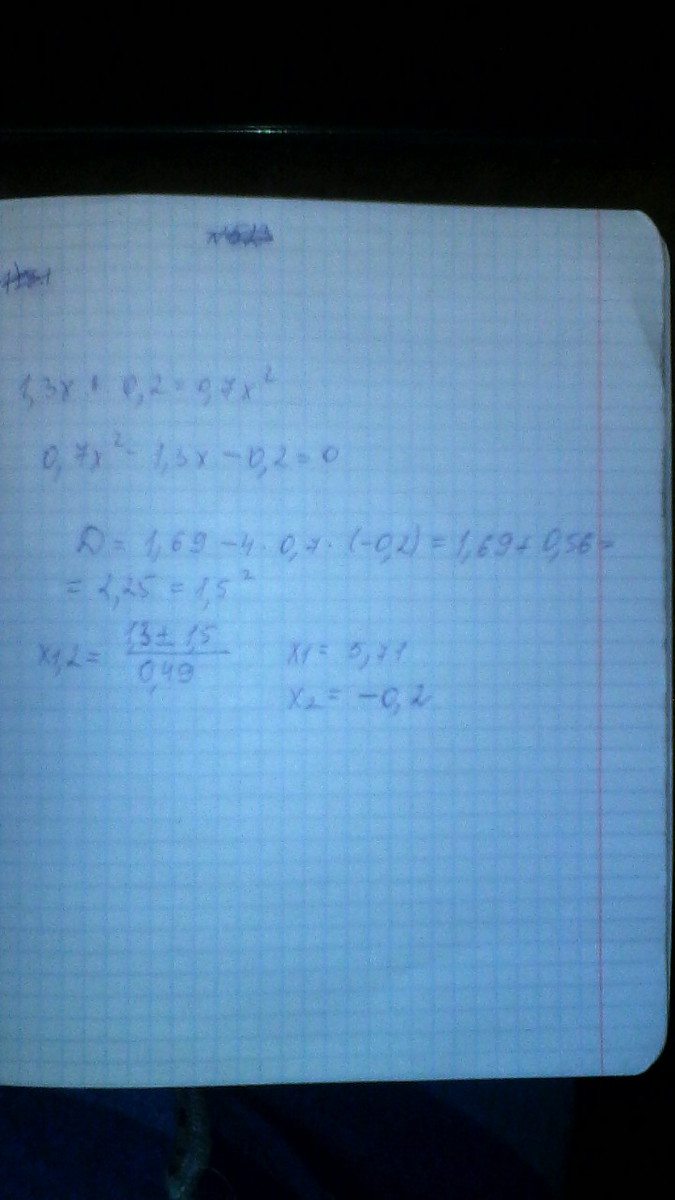 1,3x + 0,2 = 0,7x²
0,7x² - 1,3x - 0,2 = 0
D = 1,69 - 4 · 0,7 · (-0,2) = 1,69 + 0,56 =
= 2,25 = 1,5²
x1,2 = 1,3 ± 1,5 / 0,49
x1 = 5,71
x2 = -0,2